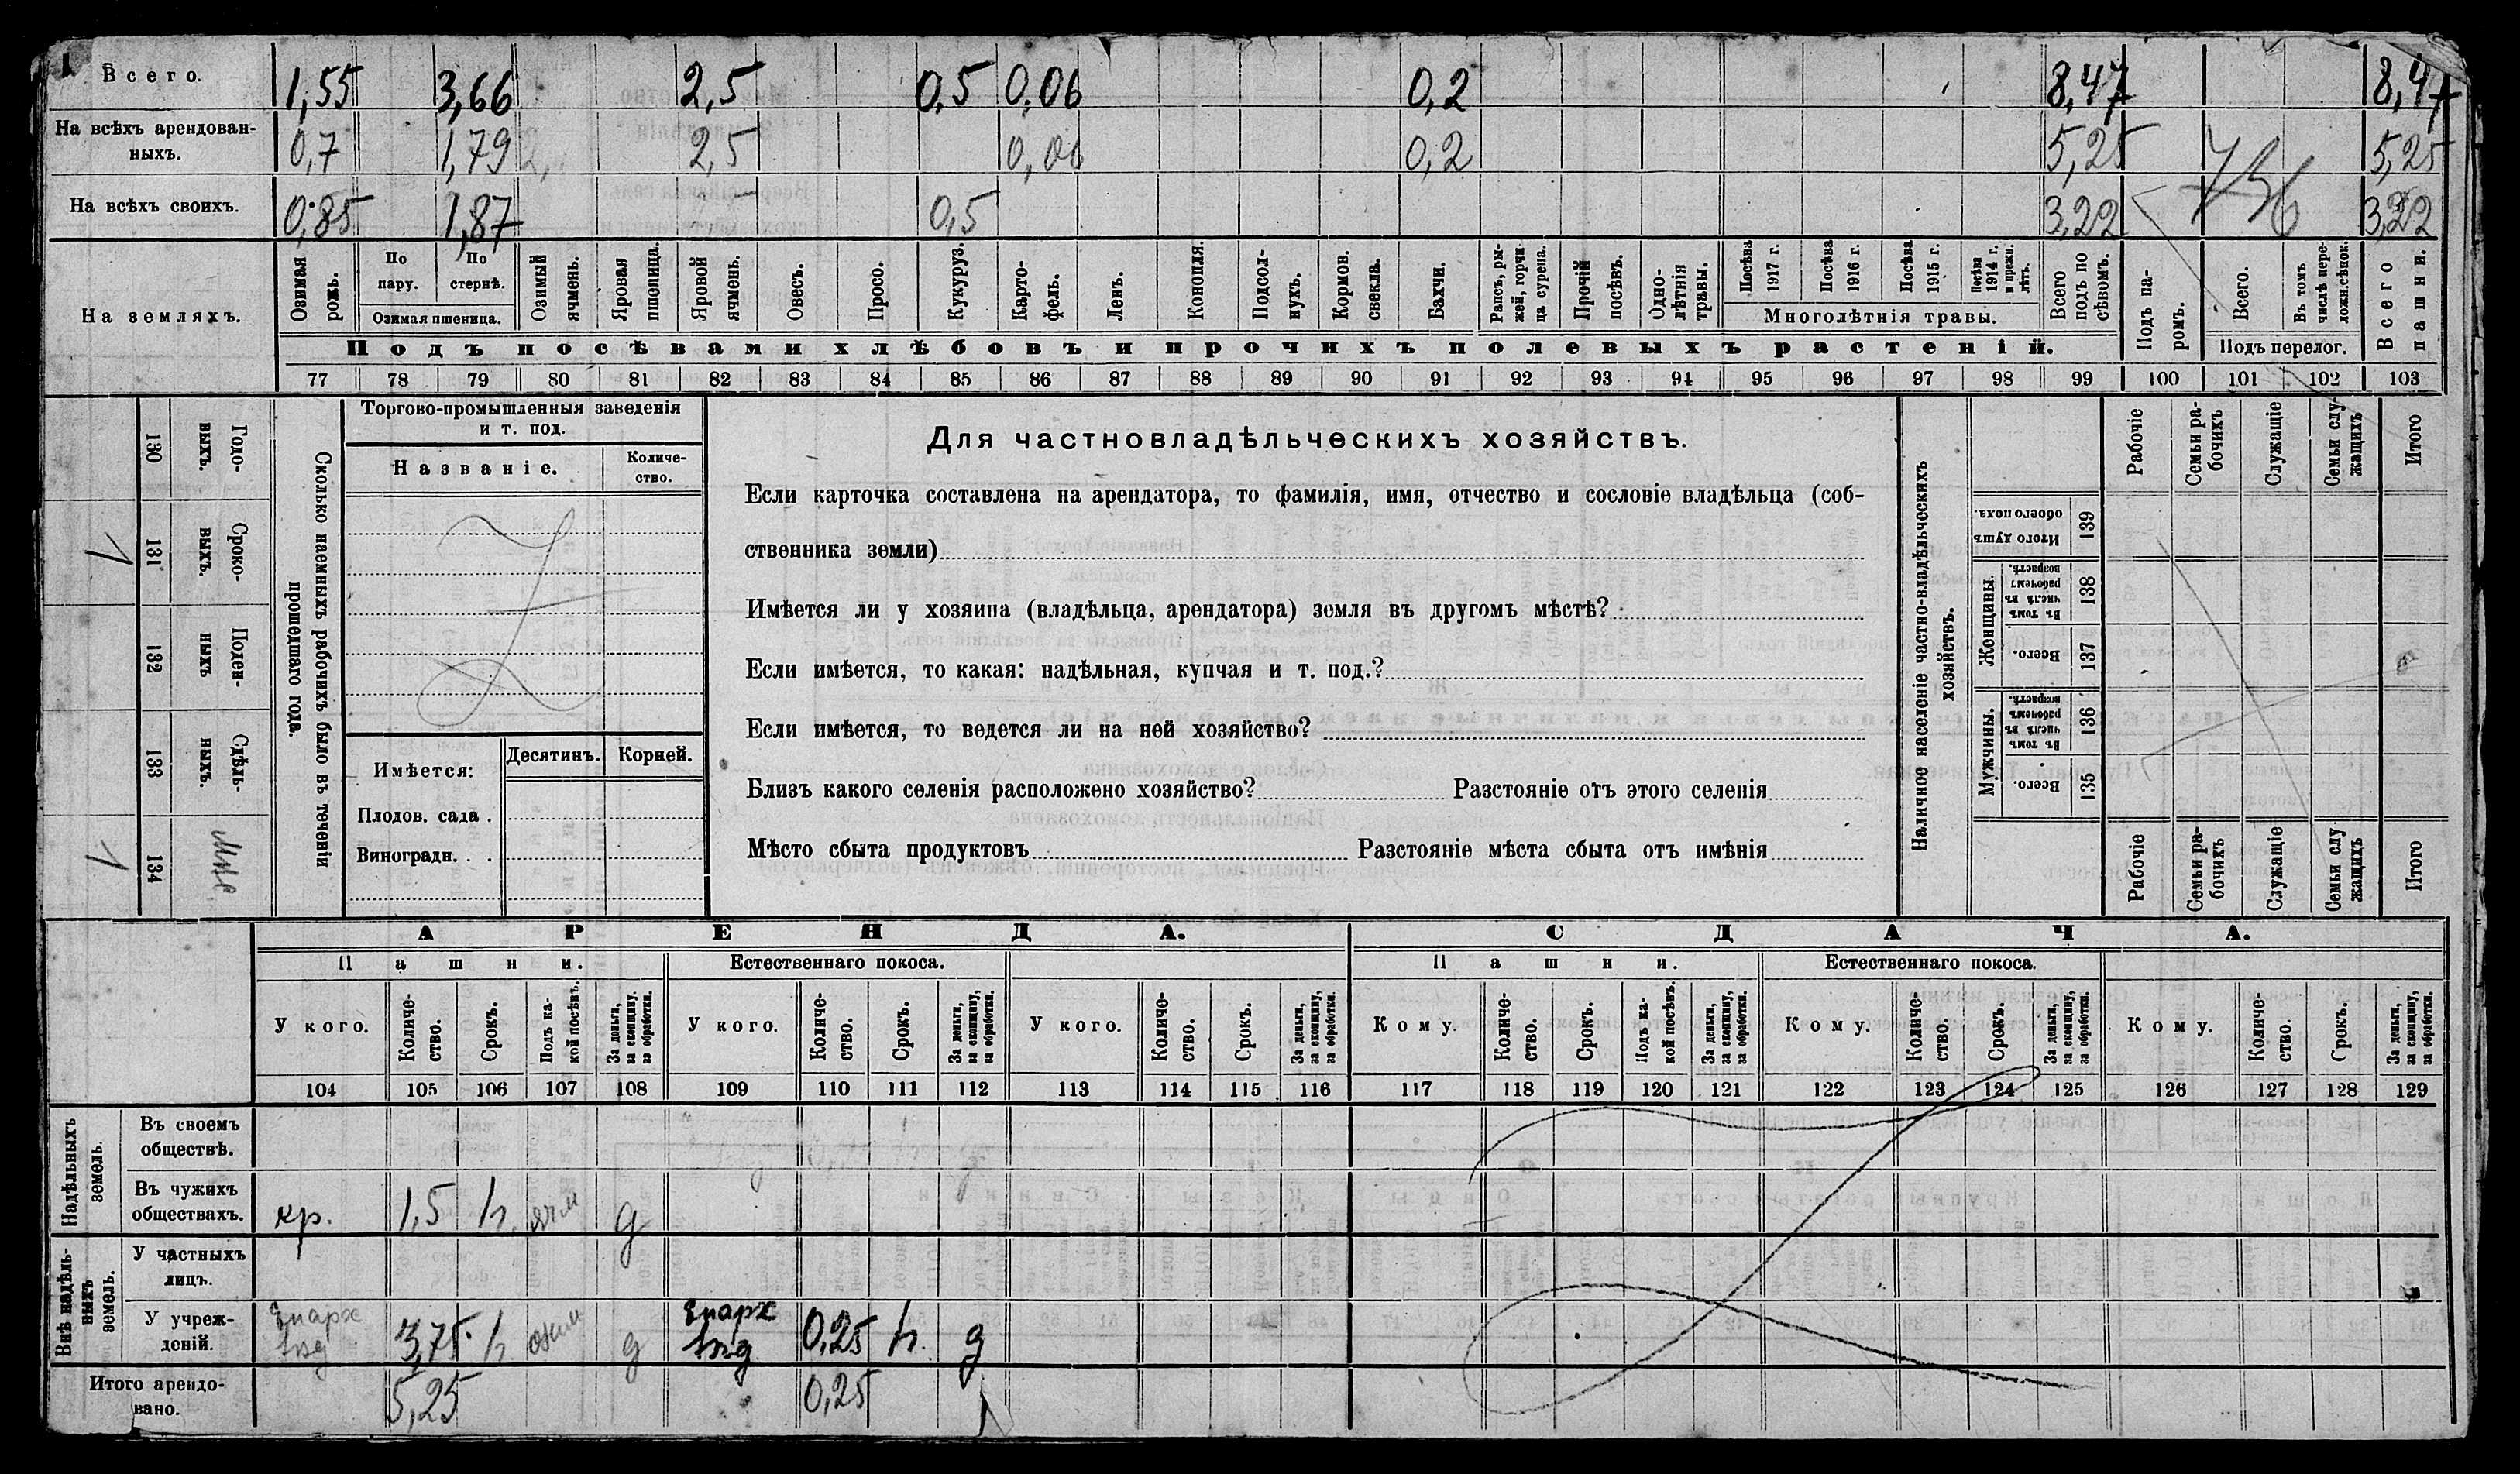 1
Всего. 1,55 3,66 2,5 0,5 0,06 0,2 8,47 8,47
На всѣхъ арендован-
ныхъ. 0,7 1,79 2,5 0,06 0,2 5,25 5,25
На всѣхъ своихъ. 0,85 1,87 0,5 3,22 3,22
На земляхъ.
Озимая рожь.
По пару.
По стернѣ.
Озимая пшеница.
Озимый ячмень.
Яровая пшеница.
Яровой ячмень.
Овесъ.
Просо.
Кукуруз.
Карто-
фель.
Ленъ.
Конопля.
Подсол-
нухъ.
Кормов. свекла.
Бахчи.
Рапсъ, ры-
жей, горчи
ца сурепа.
Прочій посѣвъ.
Одно-
лѣтнія
травы.
Посѣва 1917 г.
Посѣва 1916 г.
Посѣва 1915 г.
Посѣва 1914 г. и прежн. лѣтъ.
Многолѣтнія травы.
Всего подъ по
сѣвомъ.
Подъ па-
ромъ.
Всего.
Въ томъ числѣ пере-
ложн.сѣнок.
Подъ перелог.
Всего пашни.
Подъ посѣвами хлѣбовъ и прочихъ полевыхъ растеній.
77 78 79 80 81 82 83 84 85 86 87 88 89 90 91 92 93 94 95 96 97 98 99 100 101 102 103
Сколько наемныхъ рабочихъ было въ теченіи
прошедшаго года.
Годо-
выхъ.
130
Сроко-
выхъ.
131
1
Поден-
ныхъ
132
Сдѣль-
ныхъ.
133
134
1
Торгово-промышленныя заведенія
и т. под.
Названіе.
Количе-
ство.
Имѣется:
Десятинъ. Корней.
Плодов. сада .
Виноградн. . .
Для частновладѣльческихъ хозяйствъ.
Если карточка составлена на арендатора, то фамилія, имя, отчество и сословіе владѣльца (соб-
ственника земли)
Имѣется ли у хозяина (владѣльца, арендатора) земля въ другомъ мѣстѣ?
Если имѣется, то какая: надѣльная, купчая и т. под.?
Если имѣется, то ведется ли на ней хозяйство?
Близъ какого селенія расположено хозяйство? Разстояніе отъ этого селенія
Мѣсто сбыта продуктовъ Разстояніе мѣста сбыта отъ имѣнія
Наличное населеніе частно-владѣльческихъ
хозяйствъ.
Рабочіе
Семьи ра-
бочихъ
Служащіе
Семьи слу-
жащихъ
Итого
Итого душъ обоего пола. 139
Женщины.
Въ томъ числѣ въ рабочемъ возрастѣ. 138
Всего. 137
Мужчины.
Въ томъ числѣ въ рабочемъ возрастѣ. 136
Всего. 135
Рабочіе
Семьи ра-
бочихъ
Служащіе
Семьи слу-
жащихъ
Итого
АРЕНДА. СДАЧА.
Пашни. Естественнаго покоса. Пашни. Естественнаго покоса.
У кого.
Количе-
ство.
Срокъ.
Подъ ка-
кой посѣвъ.
За деньги, за скопщину, за обработки.
У кого.
Количе-
ство.
Срокъ.
За деньги, за скопщину, за обработки.
У кого.
Количе-
ство.
Срокъ.
За деньги, за скопщину, за обработки.
Кому.
Количе-
ство.
Срокъ.
Подъ ка-
кой посѣвъ.
За деньги, за скопщину, за обработки.
Кому.
Количе-
ство.
Срокъ.
За деньги, за скопщину, за обработки.
Кому.
Количе-
ство.
Срокъ.
За деньги, за скопщину, за обработки.
104 105 106 107 108 109 110 111 112 113 114 115 116 117 118 119 120 121 122 123 124 125 126 127 128 129
Надѣльныхъ
земель.
Въ своемъ
обществѣ.
Въ чужихъ
обществахъ. кр. 1,5 h. ячм д
Внѣ надѣль-
ныхъ
земель.
У частныхъ
лицъ.
У учреж-
деній. Епарх 3,75 h озим д Епарх 0,25 h. д
Итого арендо-
вано. 5,25 0,25